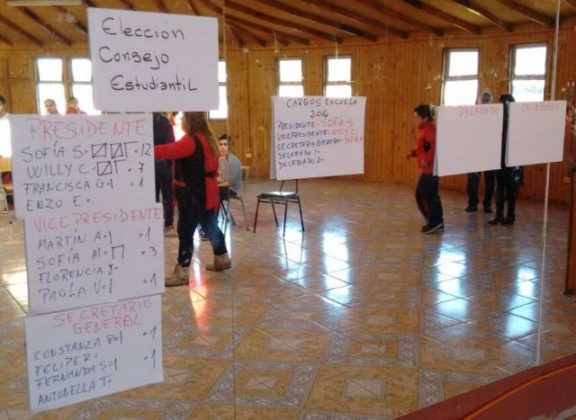 Elección
Consejo
Estudiantil
PRESIDENTE
SOFÍA S = 12
WILLY C. = 7
FRANCISCA G = 1
ENZO E =
VICEPRESIDENTE
MARTÍN A = 1
SOFÍA M = 3
FLORENCIA J =
PAOLA V = 1
SECRETARIO
GENERAL
CONSTANZA P = 1
FELIPE R =
FERNANDA S = 1
ANTONELLA T =
CARGOS ESCUELA
2016
PRESIDENTE = SOFÍA S
VICEPRESIDENTE = WILLY C
SECRETARIO GENERAL = SOFÍA
DELEGADO 1 =
DELEGADO 2 =
DELEGADO
DELEGADO